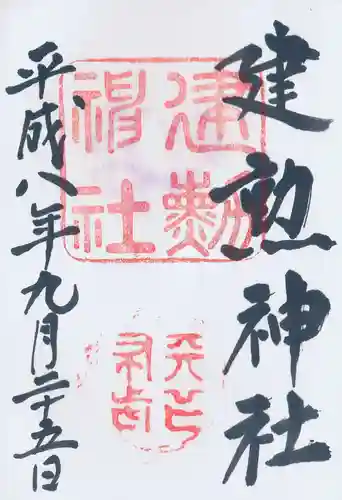 建勲神社
平成八年九月二十五日
建勲
神社
天下
布武